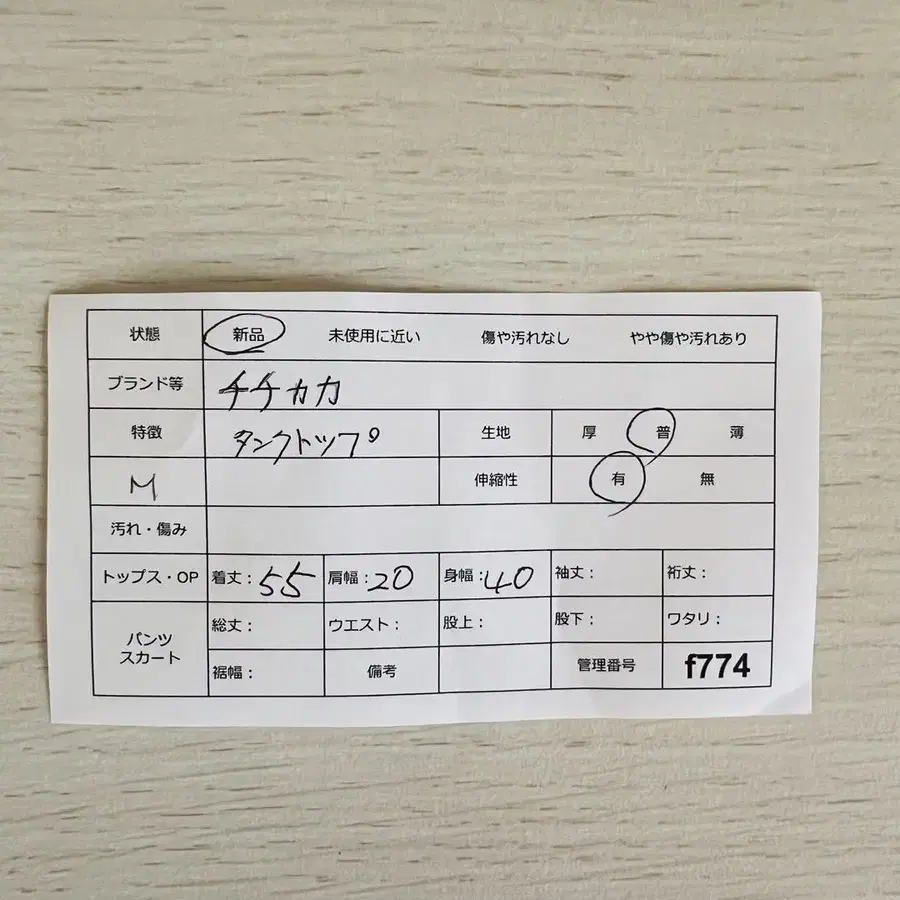 状態 新品 未使用に近い 傷や汚れなし やや傷や汚れあり
ブランド等 チチカカ
特徴 タンクトップ 生地 厚 普 薄
M 伸縮性 有 無
汚れ・傷み
トップス・OP 着丈:55 肩幅:20 身幅:40 袖丈: 裄丈:
パンツ スカート 総丈: ウエスト: 股上: 股下: ワタリ:
裾幅: 備考 管理番号 f774